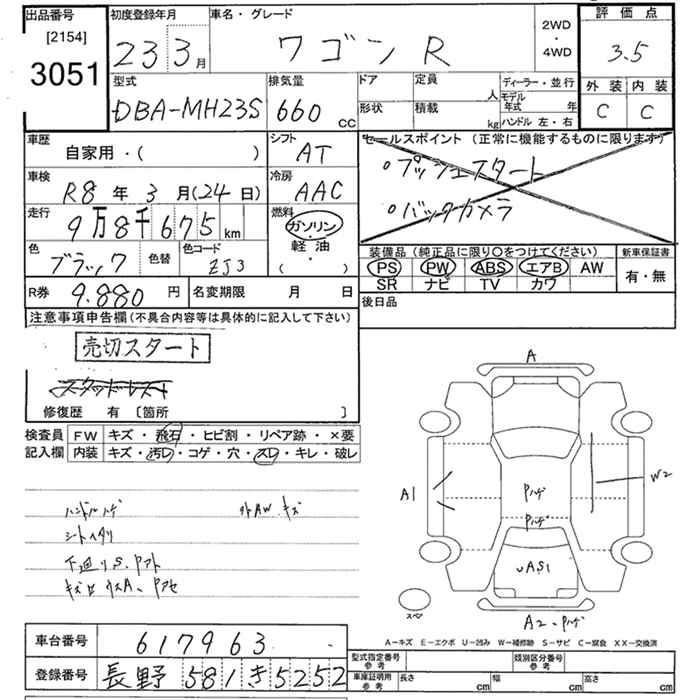 出品番号
[2154]
3051
初度登録年月
23 3月
車名・グレード
ワゴンR
2WD
・
4WD
評価点
3.5
外装 内装
C C
型式
DBA-MH23S
排気量
660 CC
ドア
形状
定員 人
積載 kg
ディーラー・並行
モデル年式 年
ハンドル 左・右
車歴
自家用・( )
シフト
AT
車検
R8年3月(24日)
冷房
AAC
走行
9万8千675km
燃料
ガソリン
軽油
( ・ )
色
ブラック
色替
色コード
ZJ3
R券 9.880円
名変期限 月 日
セールスポイント (正常に機能するものに限ります)
○プッシュスタート
○バックカメラ
装備品 (純正品に限り○をつけてください)
PS PW ABS エアB AW
SR ナビ TV カワ
新車保証書
有・無
後日品
注意事項申告欄 (不具合内容等は具体的に記入して下さい)
売切スタート
スタッドレス
修復歴 有 [箇所 ]
検査員記入欄
FW キズ・飛石・ヒビ割・リペア跡・×要
内装 キズ・汚レ・コゲ・穴・スレ・キレ・破レ
ハンドルハゲ
外AWキズ
シートヘタリ
下廻りS.
A
A1
W2
Pハゲ
Pハゲ
AS1
スペア
A2-Pハゲ
A-キズ E-エクボ U-凹み W-補修跡 S-サビ C-腐食 XX-交換済
車台番号 617963
登録番号 長野 581 き 5252
型式指定番号 参考
類別区分番号 参考
車庫証明用 参考
長さ cm 幅 cm 高さ cm